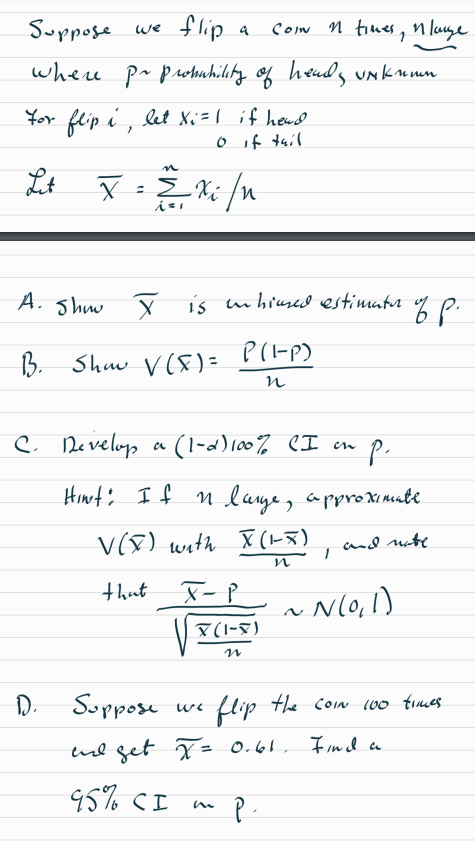 Suppose we flip a coin n times, n large
where p ~ probability of head, unknown
For flip i, let Xi = 1 if head
0 if tail
Let X̄ = Σ_{i=1}^{n} Xi / n
A. Show X̄ is unbiased estimator of p.
B. Show V(X̄) = P(1-P)/n
C. Develop a (1-α)100% CI on p.
Hint: If n large, approximate
V(X̄) with X̄(1-X̄)/n, and note
that (X̄ - P)/√(X̄(1-X̄)/n) ~ N(0,1)
D. Suppose we flip the coin 100 times
and get X̄ = 0.61. Find a
95% CI on p.